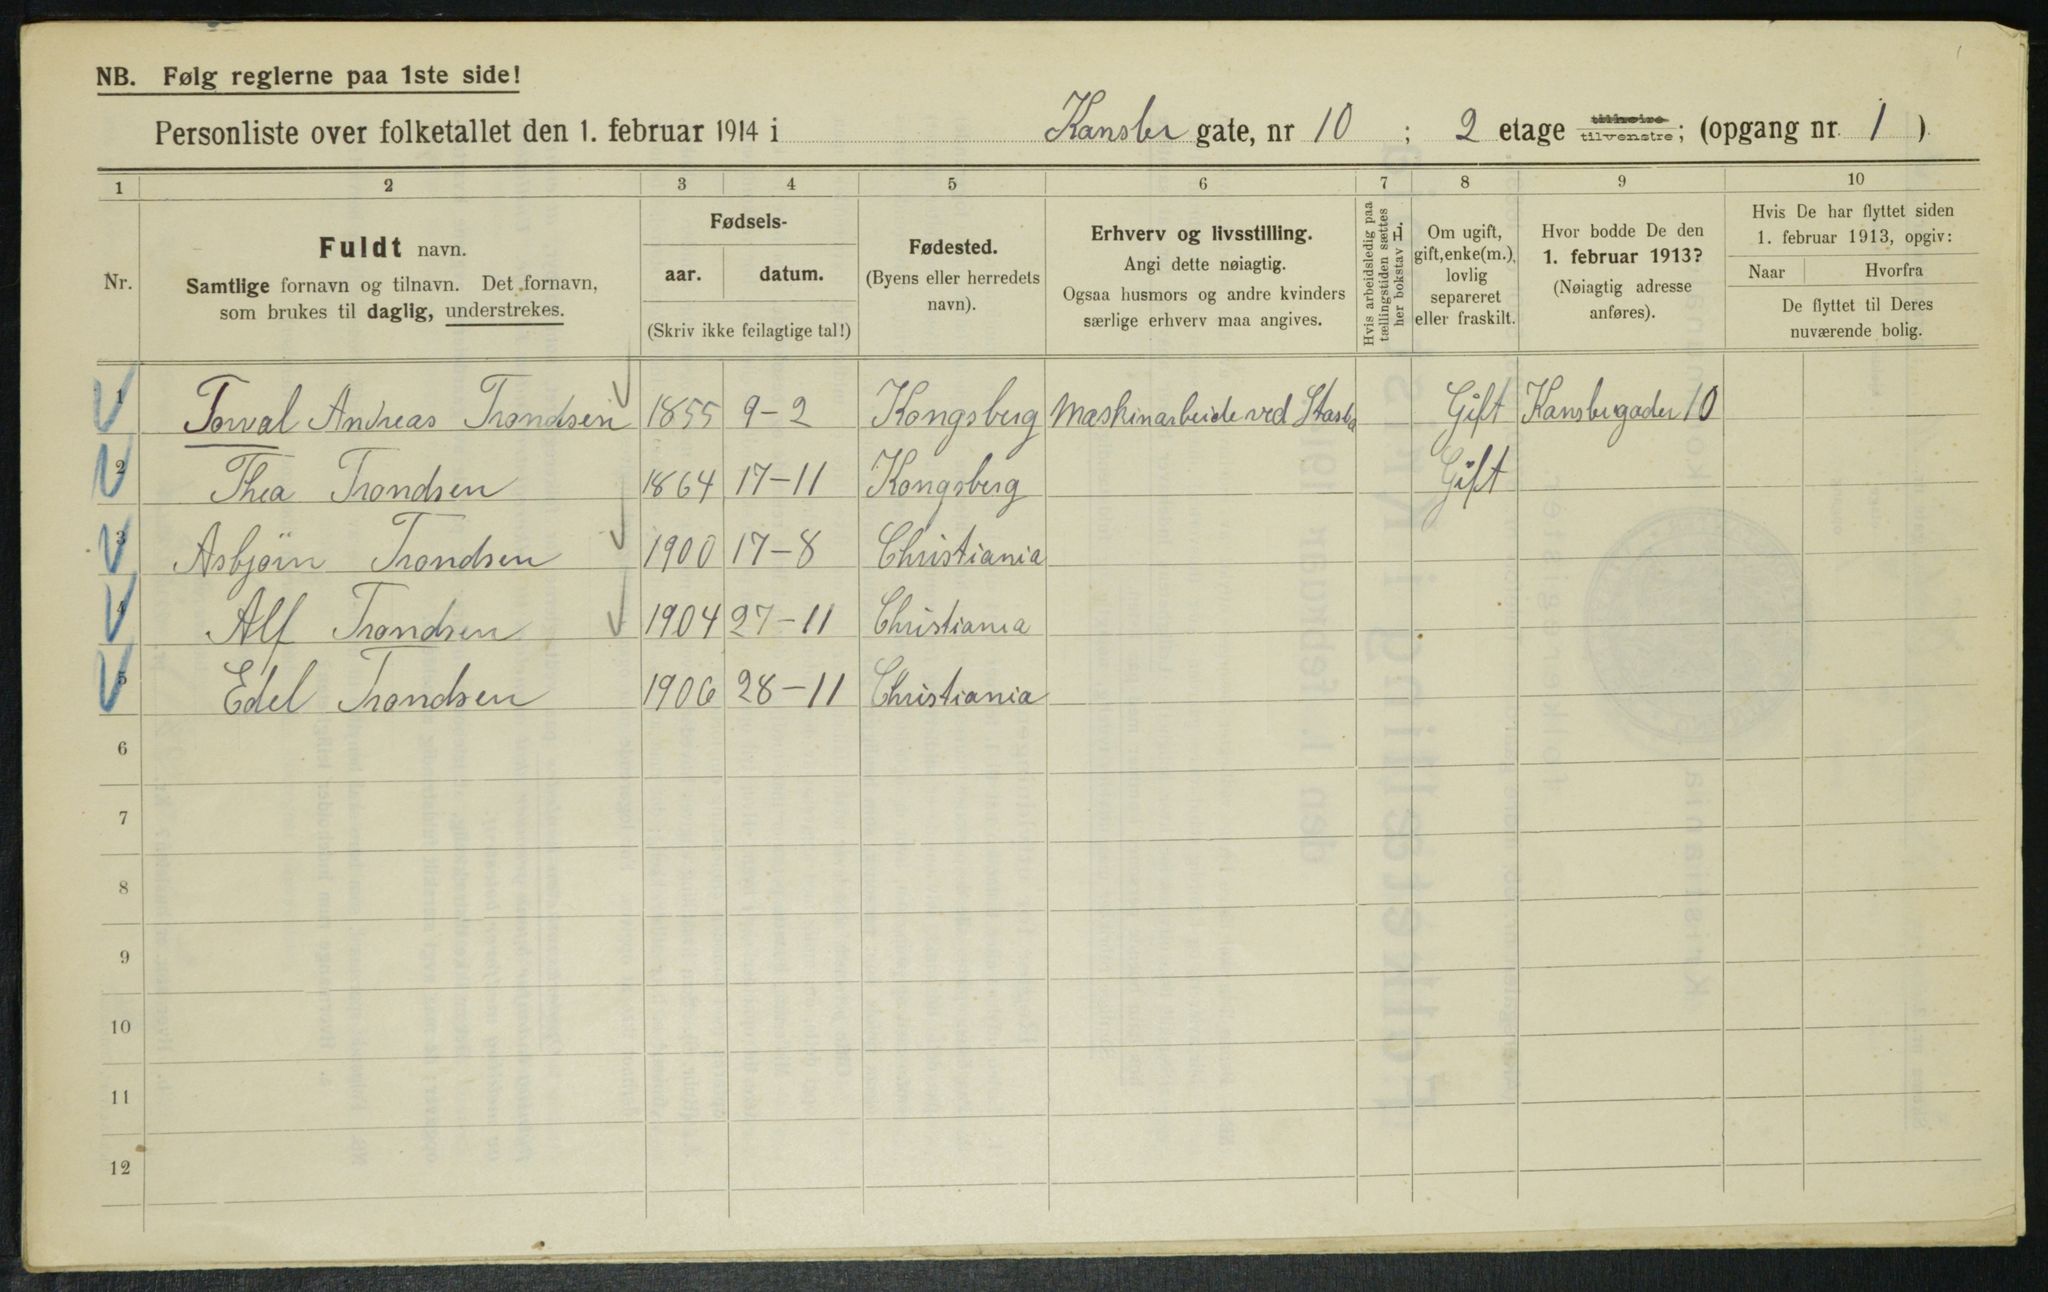 NB. Følg reglerne paa 1ste side!
Personliste over folketallet den 1. februar 1914 i Kansler gate, nr 10 ; 2 etage tilhøire tilvenstre; (opgang nr. 1 )
1 2 3 4 5 6 7 8 9 10
Nr.
Fuldt navn.
Samtlige fornavn og tilnavn. Det fornavn,
som brukes til daglig, understrekes.
Fødsels-
aar. datum.
(Skriv ikke feilagtige tal!)
Fødested.
(Byens eller herredets
navn).
Erhverv og livsstilling.
Angi dette nøiagtig.
Ogsaa husmors og andre kvinders
særlige erhverv maa angives.
Hvis arbeidsledig paa
tællingstiden sættes
her bokstav L.
Om ugift,
gift, enke(m.),
lovlig
separeret
eller fraskilt.
Hvor bodde De den
1. februar 1913?
(Nøiagtig adresse
anføres).
Hvis De har flyttet siden
1. februar 1913, opgiv:
Naar Hvorfra
De flyttet til Deres
nuværende bolig.
1 Torval Andreas Trondsen 1855 9-2 Kongsberg Maskinarbeide ved Gift Kanslergaden 10
2 Thea Trondsen 1864 17-11 Kongsberg Gift
3 Asbjørn Trondsen 1900 17-8 Christiania
4 Alf Trondsen 1904 27-11 Christiania
5 Edel Trondsen 1906 28-11 Christiania
6
7
8
9
10
11
12